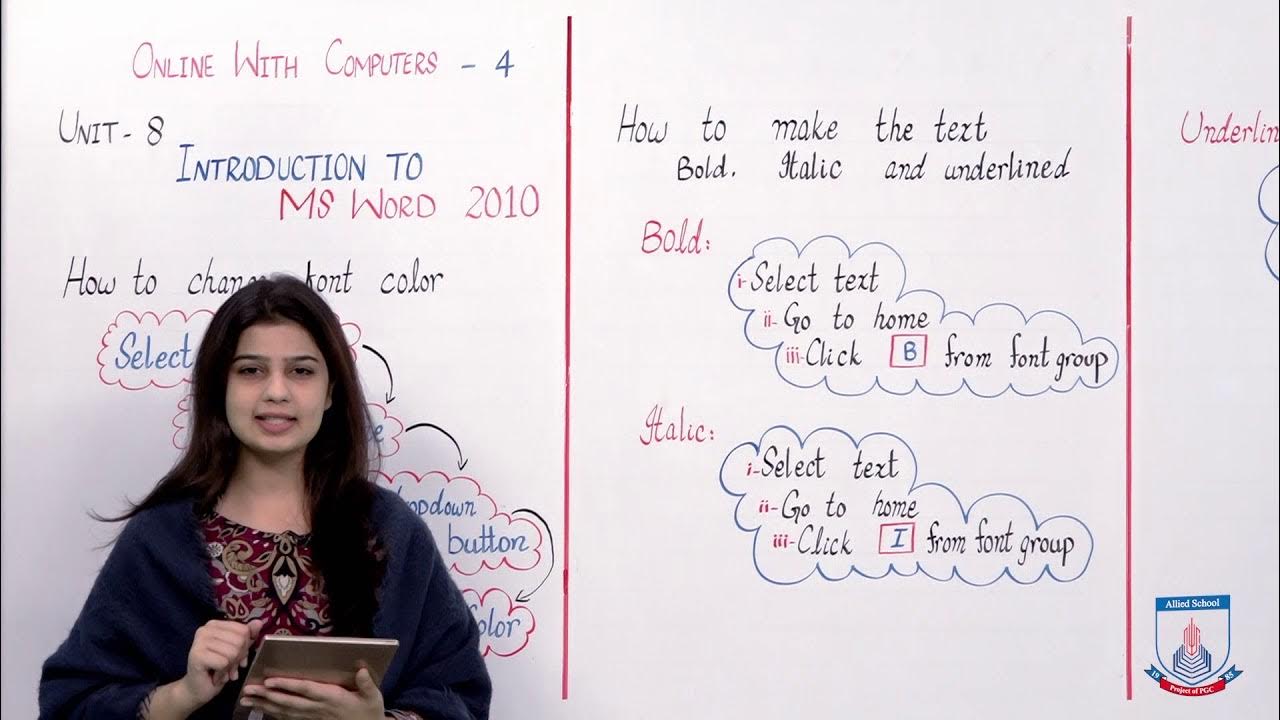 ONLINE WITH COMPUTERS - 4
UNIT - 8
INTRODUCTION TO
MS WORD 2010
How to font color
Select
dropdown
button
color
How to make the text
Bold. Italic and underlined
Bold:
i- Select text
ii- Go to home
iii- Click B from font group
Italic:
i- Select text
ii- Go to home
iii- Click I from font group
Allied School
19 85
Project of PGC